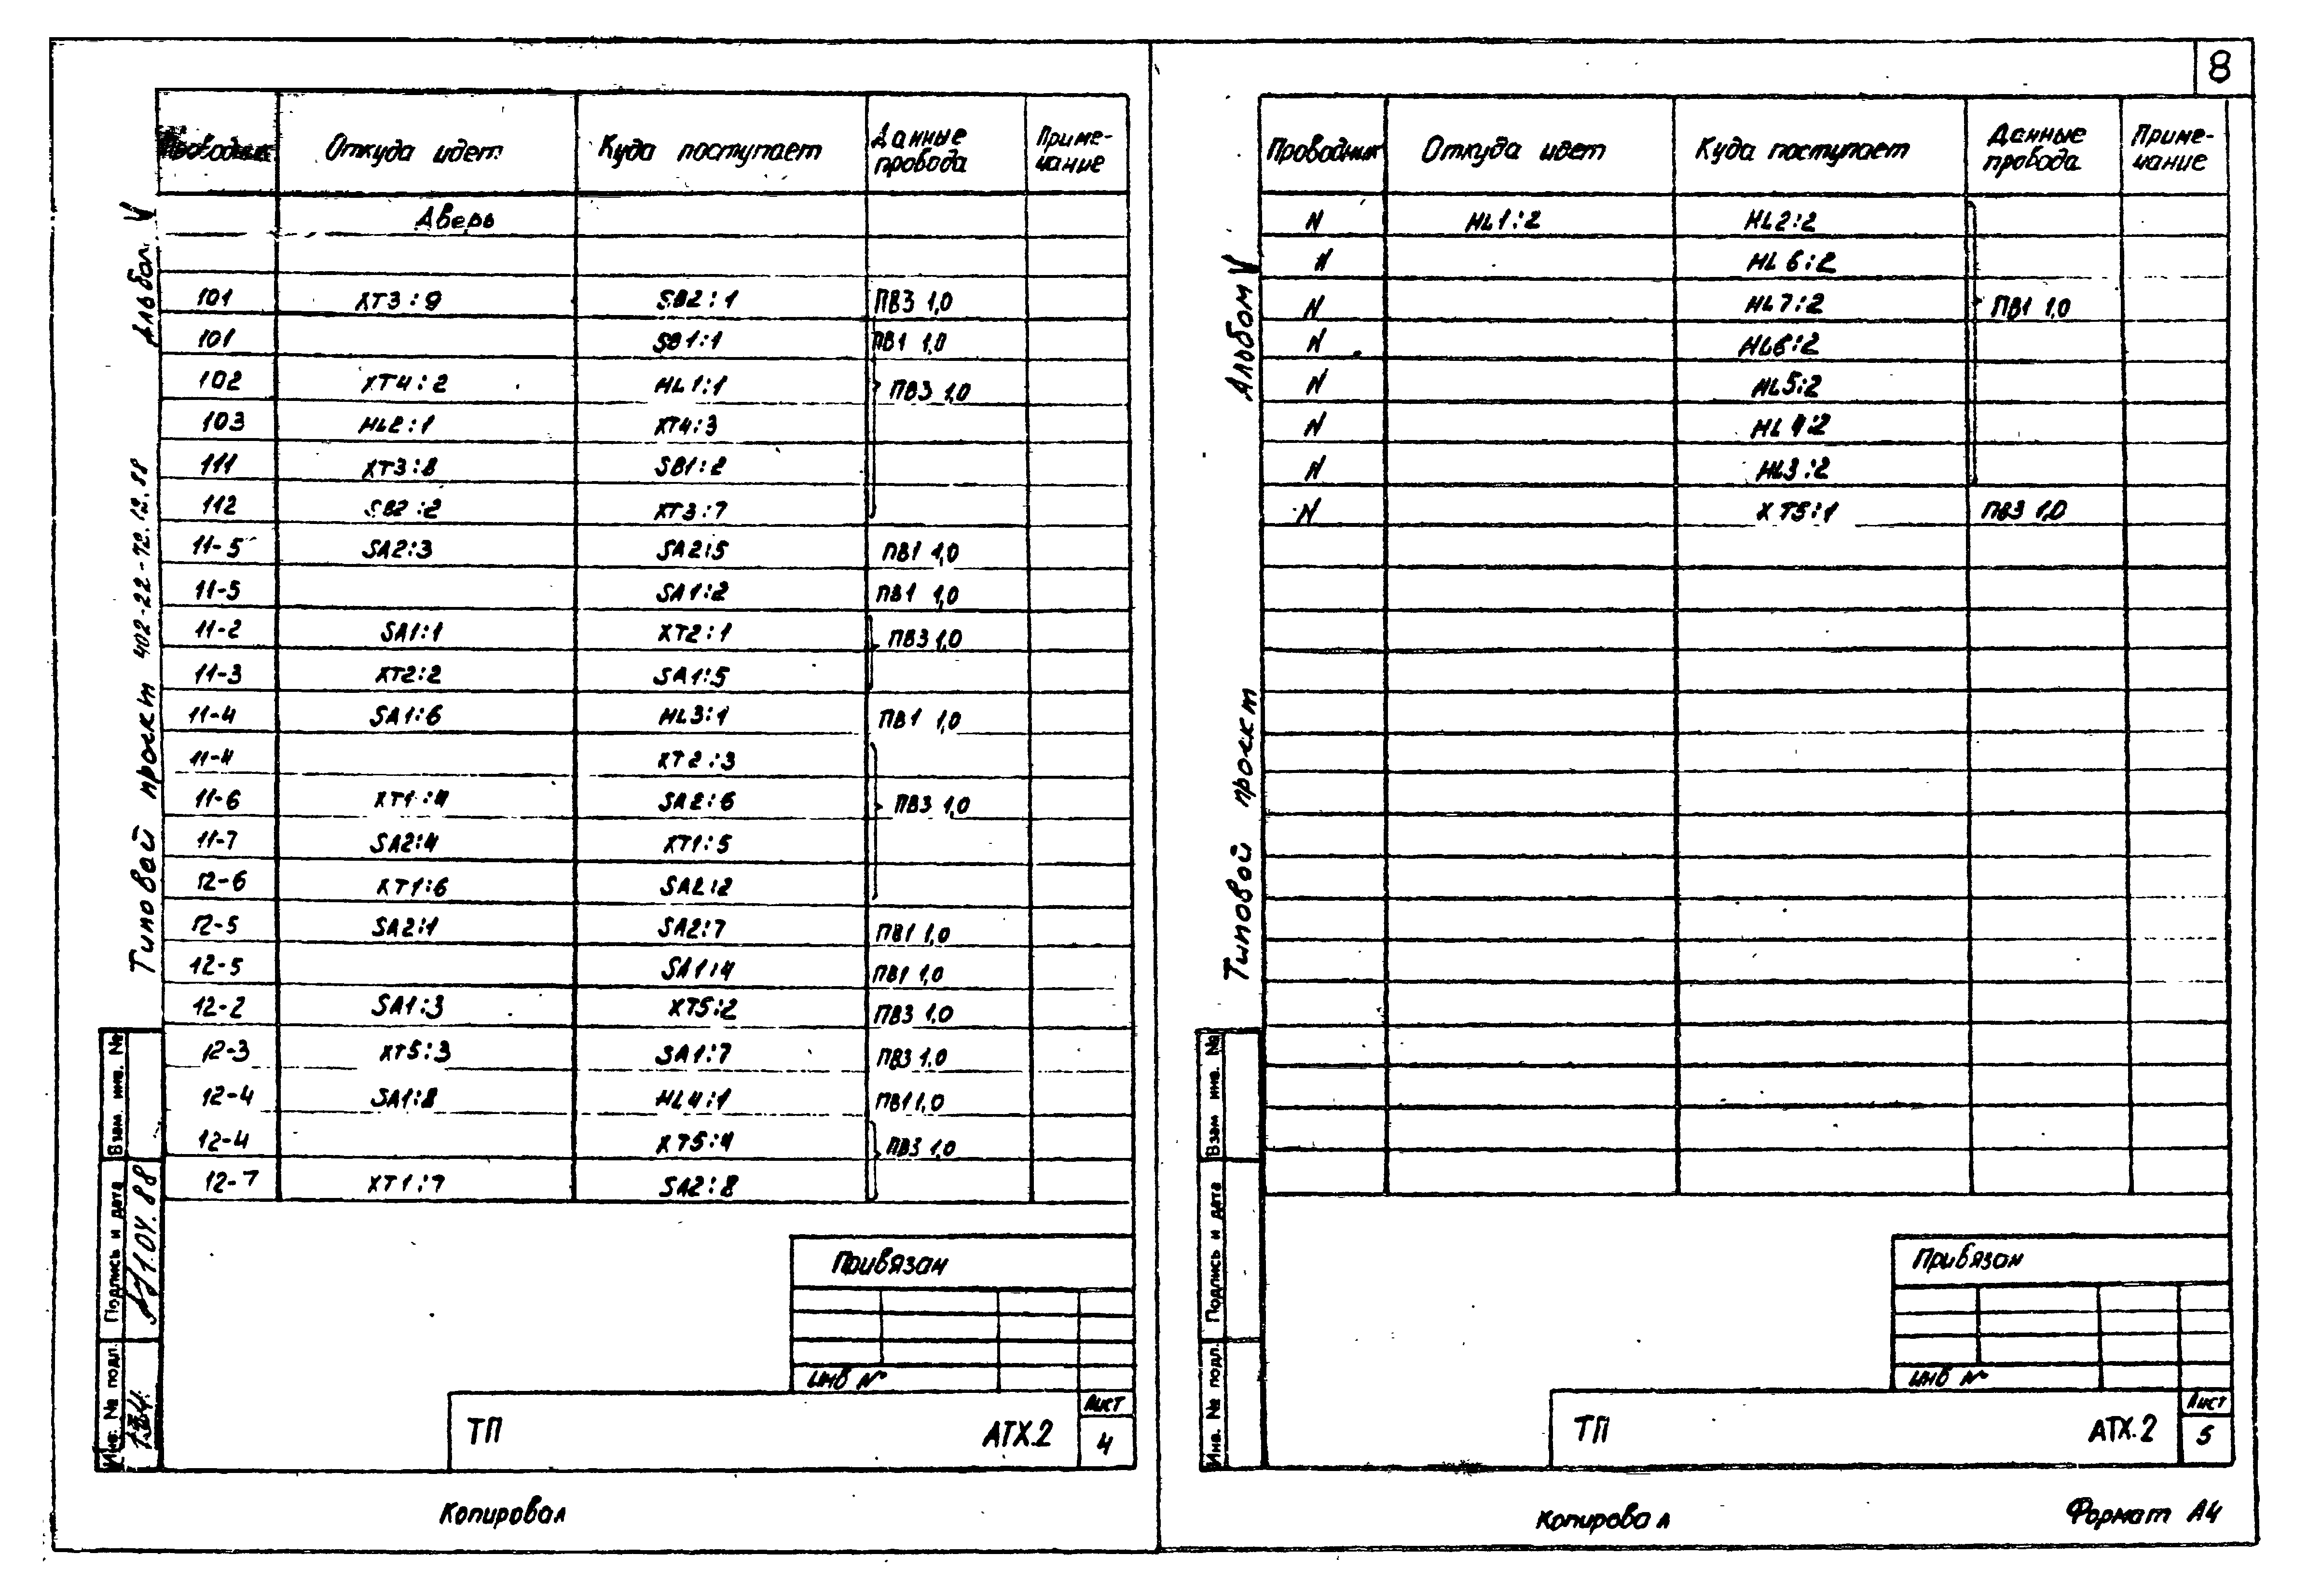 8
Проводник Откуда идет Куда поступает Данные провода Приме-чание
Дверь
101 XT3:9 SB2:1 ПВ3 1,0
101 SB1:1 ПВ1 1,0
102 XT4:2 HL1:1 ПВ3 1,0
103 HL2:1 XT4:3
111 XT3:8 SB1:2
112 SB2:2 XT3:7
11-5 SA2:3 SA2:5 ПВ1 1,0
11-5 SA1:2 ПВ1 1,0
11-2 SA1:1 XT2:1 ПВ3 1,0
11-3 XT2:2 SA1:5
11-4 SA1:6 HL3:1 ПВ1 1,0
11-4 XT2:3
11-6 XT1:4 SA2:6 ПВ3 1,0
11-7 SA2:4 XT1:5
12-6 XT1:6 SA2:2
12-5 SA2:1 SA2:7 ПВ1 1,0
12-5 SA1:4 ПВ1 1,0
12-2 SA1:3 XT5:2 ПВ3 1,0
12-3 XT5:3 SA1:7 ПВ3 1,0
12-4 SA1:8 HL4:1 ПВ1 1,0
12-4 XT5:4 ПВ3 1,0
12-7 XT1:7 SA2:8
Привязан
ИНВ №
ТП АТХ.2
Лист
4
Копировал
Типовой проект 402-22-72.12.88 Альбом V
Взам. инв. №
Подпись и дата
Инв. № подл.
Проводник Откуда идет Куда поступает Данные провода Приме-чание
N HL1:2 HL2:2
N HL6:2
N HL7:2 ПВ1 1,0
N HL6:2
N HL5:2
N HL4:2
N HL3:2
N XT5:1 ПВ3 1,0
Привязан
ИНВ №
ТП АТХ.2
Лист
5
Копировал
Формат А4
Типовой проект Альбом V
Взам инв. №
Подпись и дата
Инв. № подл.